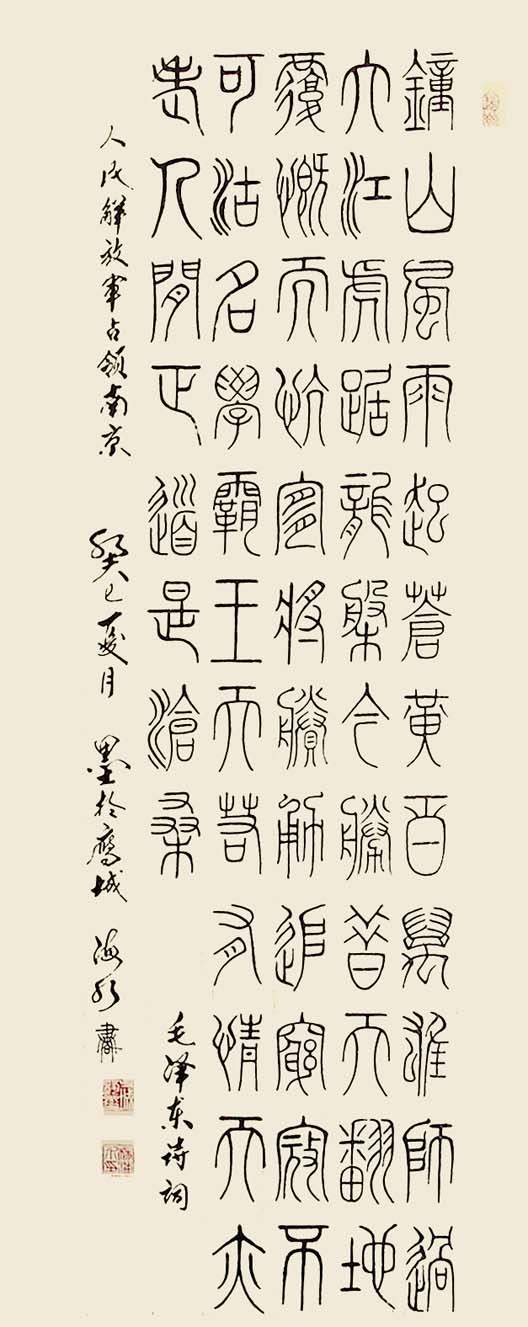 鐘山風雨起蒼黄百萬雄師過
大江虎踞龍槃今勝昔天翻地
覆慨而慷宜將賸勇追窮寇不
可沽名學霸王天若有情天亦
老人間正道是滄桑
毛泽东诗词
人民解放軍占领南京
癸巳夏月 墨於鹰城 海